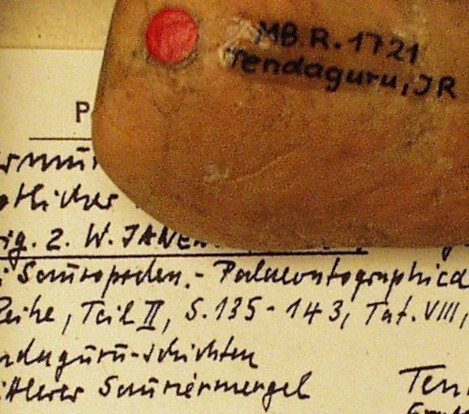 MB.R.1721
Tendaguru, JR
P
rig. 2. W. JANEN
Sauropoden. - Palaeontographica
Reihe, Teil II, S. 135-143, Taf. VIII,
ndaguru-Schichten
ittlerer Sauriermergel
Ten